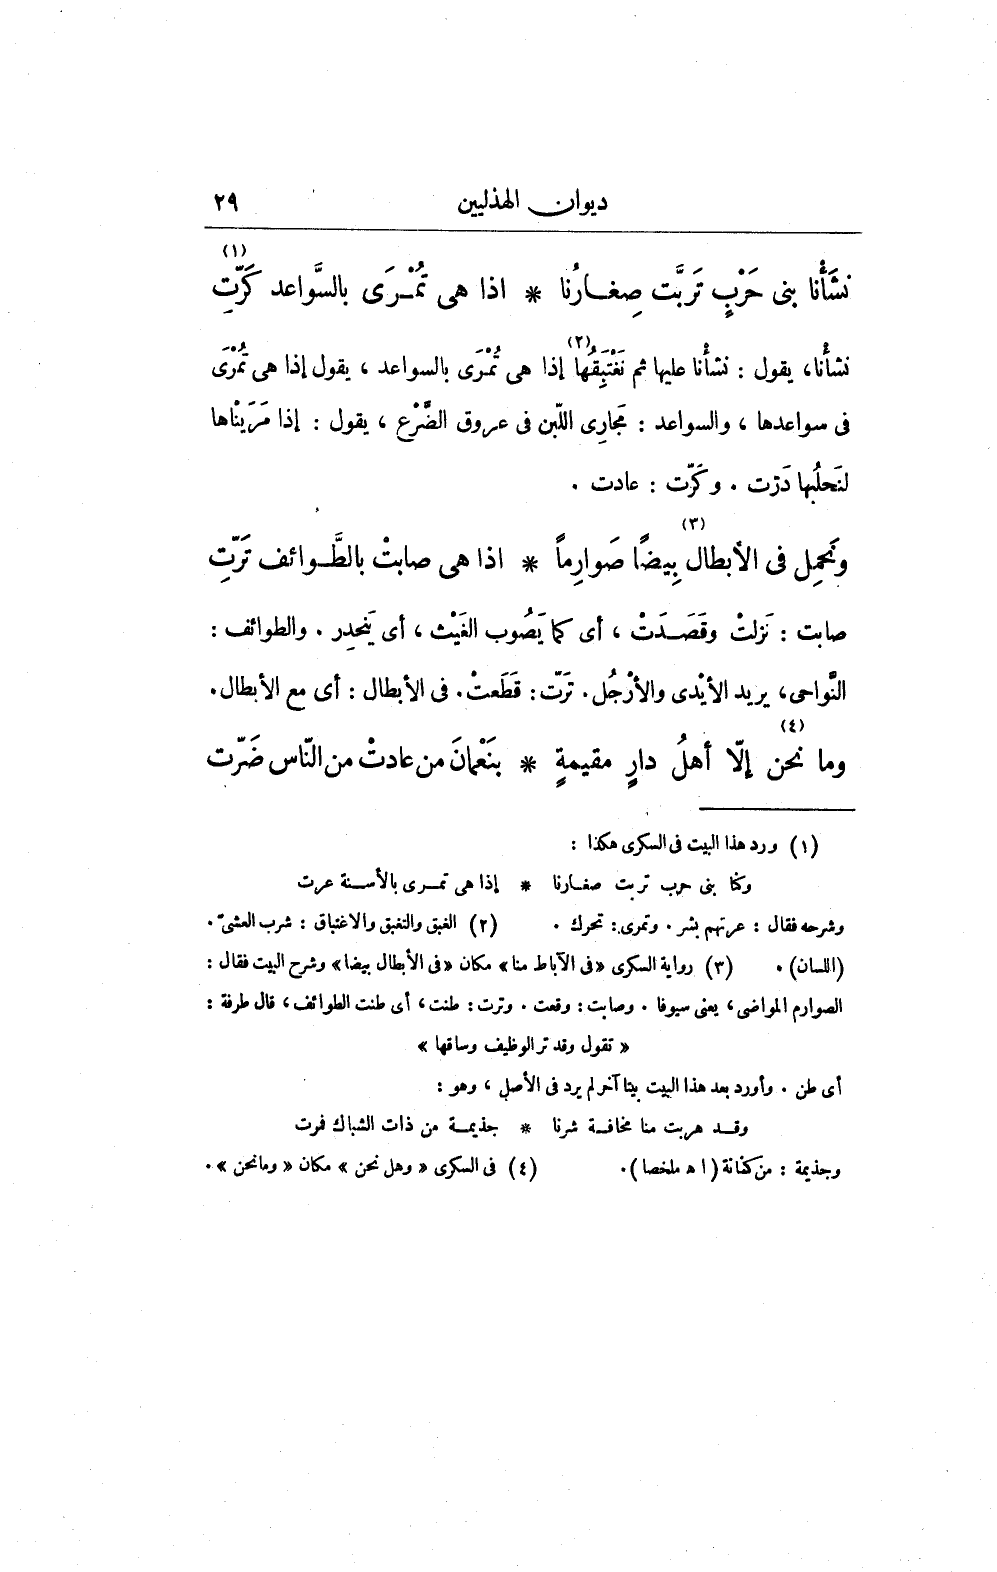 ديوان الهذليين ٢٩
نشَأْنا بنى حَرْبٍ تَربَّت صِغارُنا * اذا هى تُمْرَى بالسَّواعد كَرّتِ (١)
نشأْنا، يقول : نشأْنا عليها ثم نَغْتَبِقُها (٢) إذا هى تُمْرَى بالسواعد ، يقول إذا هى تُمْرَى
فى سواعدها ، والسواعد : مَجارى اللّبن فى عروق الضَّرْع ، يقول : إذا مَرَيْناها
لنَحلُبها دَرّت . وكَرّت : عادت .
ونَحمِل فى الأبطال (٣) بِيضًا صَوارِماً * اذا هى صابتْ بالطَّوائف تَرَّتِ
صابت : نَزلتْ وقَصَدَتْ ، أى كما يَصُوب الغَيْث ، أى يَنحدِر . والطوائف :
النَّواحى، يريد الأيْدى والأرْجُل. تَرّت : قَطَعتْ. فى الأبطال : أى مع الأبطال.
وما (٤) نحن إلّا أهلُ دارٍ مقيمةٍ * بنَعْمانَ من عادتْ من النّاس ضَرّت
(١) ورد هذا البيت فى السكرى هكذا :
وكنا بنى حرب تربت صغارنا * إذا هى تمرى بالأسنة عرت
وشرحه فقال : عرتهم بشر . وتمرى: تحرك . (٢) الغبق والتغبق والاغتباق : شرب العشىّ .
(اللسان) . (٣) رواية السكرى «فى الآباط منا» مكان «فى الأبطال بيضا» وشرح البيت فقال :
الصوارم المواضى، يعنى سيوفا . وصابت : وقعت . وترت : طنت، أى طنت الطوائف، قال طرفة :
« تقول وقد تر الوظيف وساقها »
أى طن . وأورد بعد هذا البيت بيتا آخر لم يرد فى الأصل ، وهو :
وقد هربت منا مخافة شرنا * جذيمة من ذات الشباك فرت
وجذيمة : من كنانة (ا ه ملخصا). (٤) فى السكرى « وهل نحن » مكان « وما نحن ».